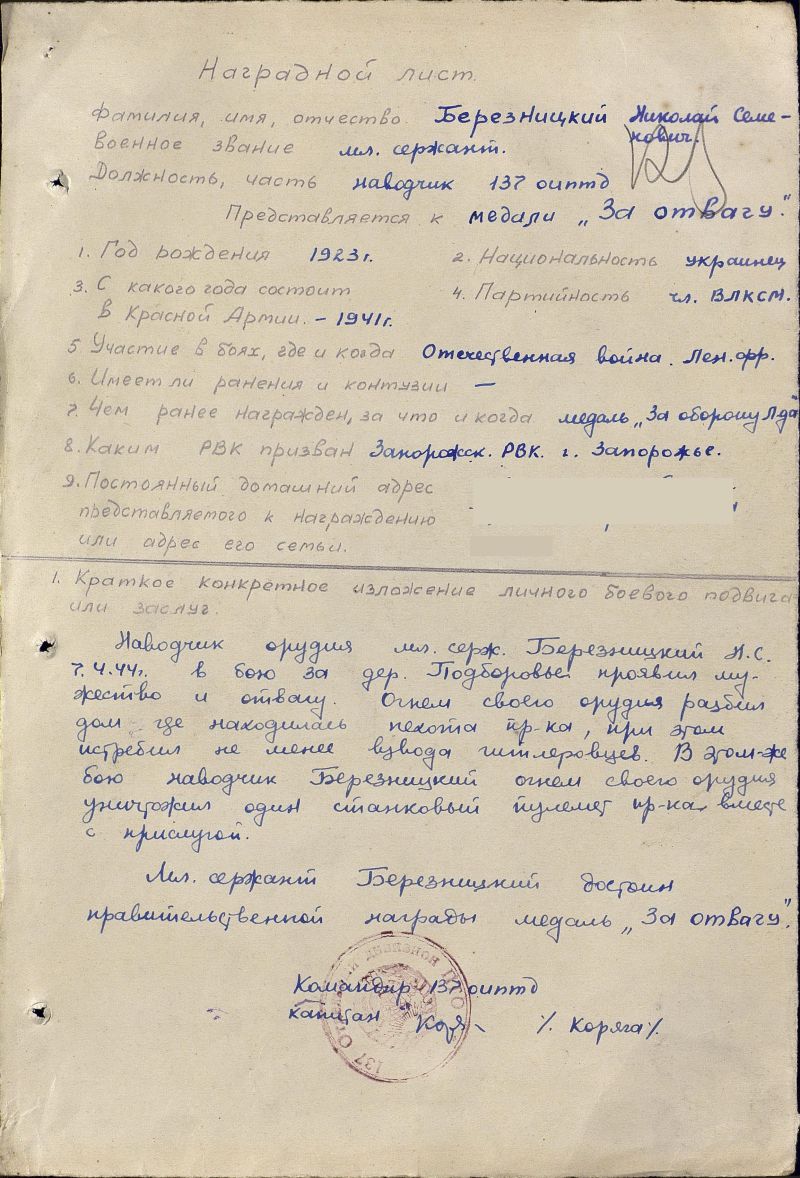 Наградной лист.
Фамилия, имя, отчество Березницкий Николай Семе-
нович.
Военное звание мл. сержант.
Должность, часть наводчик 137 оиптд
Представляется к медали „За отвагу".
1. Год рождения 1923 г. 2. Национальность украинец
3. С какого года состоит 4. Партийность чл. ВЛКСМ.
в Красной Армии. – 1941 г.
5 Участие в боях, где и когда Отечественная война. Лен. фр.
6. Имеет ли ранения и контузии —
7. Чем ранее награжден, за что и когда медаль „За оборону Л-да"
8. Каким РВК призван Запорожск. РВК. г. Запорожье.
9. Постоянный домашний адрес
представляемого к награждению
или адрес его семьи.
1. Краткое конкретное изложение личного боевого подвига
или заслуг.
Наводчик орудия мл. серж. Березницкий Н.С.
7.4.44г. в бою за дер. Подборовье проявил му-
жество и отвагу. Огнем своего орудия разбил
дом где находилась пехота пр-ка, при этом
истребил не менее взвода гитлеровцев. В этом-же
бою наводчик Березницкий огнем своего орудия
уничтожил один станковый пулемет пр-ка вместе
с прислугой.
Мл. сержант Березницкий достоин
правительственной награды медаль „За отвагу".
Командир 137 оиптд
капитан /. Коряга /.
137 Отдельный дивизион ПТО